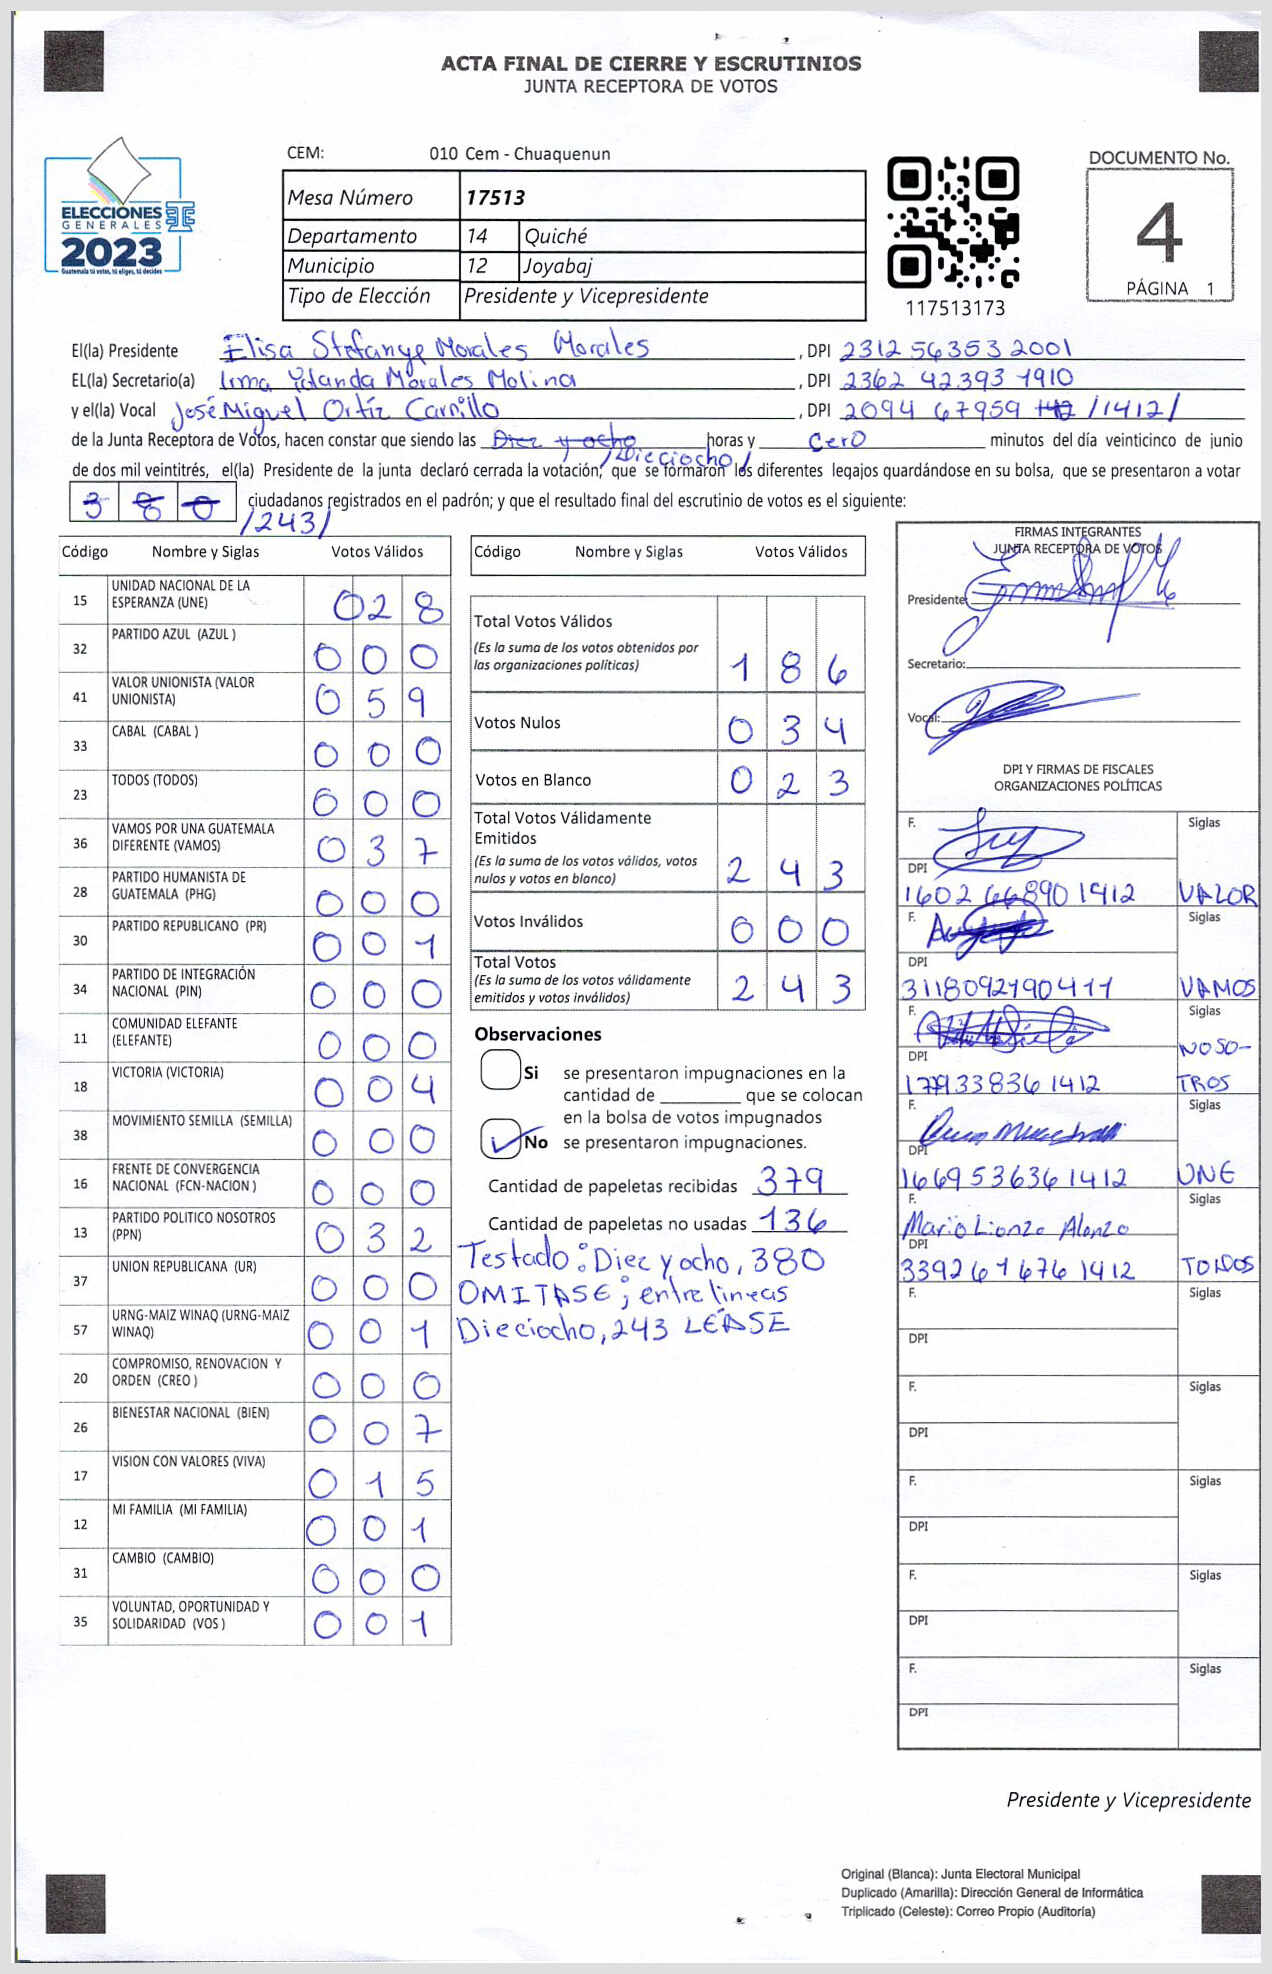 ACTA FINAL DE CIERRE Y ESCRUTINIOS
JUNTA RECEPTORA DE VOTOS
ELECCIONES
GENERALES
2023
Guatemala tú votas, tú eliges, tú decides
CEM: 010 Cem - Chuaquenun
Mesa Número 17513
Departamento 14 Quiché
Municipio 12 Joyabaj
Tipo de Elección Presidente y Vicepresidente
117513173
DOCUMENTO No.
4
PÁGINA 1
El(la) Presidente Elisa Stefanye Morales Morales, DPI 2312 56353 2001
EL(la) Secretario(a) Irma Yolanda Morales Molina, DPI 2362 42393 1910
y el(la) Vocal José Miguel Ortíz Carrillo, DPI 2094 67959 /1412/
de la Junta Receptora de Votos, hacen constar que siendo las Diez y ocho horas y cero minutos del día veinticinco de junio
/Dieciocho/
de dos mil veintitrés, el(la) Presidente de la junta declaró cerrada la votación, que se formaron los diferentes legajos guardándose en su bolsa, que se presentaron a votar
3 8 0 ciudadanos registrados en el padrón; y que el resultado final del escrutinio de votos es el siguiente:
/243/
Código Nombre y Siglas Votos Válidos
15 UNIDAD NACIONAL DE LA ESPERANZA (UNE) 0 2 8
32 PARTIDO AZUL (AZUL ) 0 0 0
41 VALOR UNIONISTA (VALOR UNIONISTA) 0 5 9
33 CABAL (CABAL ) 0 0 0
23 TODOS (TODOS) 0 0 0
36 VAMOS POR UNA GUATEMALA DIFERENTE (VAMOS) 0 3 7
28 PARTIDO HUMANISTA DE GUATEMALA (PHG) 0 0 0
30 PARTIDO REPUBLICANO (PR) 0 0 1
34 PARTIDO DE INTEGRACIÓN NACIONAL (PIN) 0 0 0
11 COMUNIDAD ELEFANTE (ELEFANTE) 0 0 0
18 VICTORIA (VICTORIA) 0 0 4
38 MOVIMIENTO SEMILLA (SEMILLA) 0 0 0
16 FRENTE DE CONVERGENCIA NACIONAL (FCN-NACION ) 0 0 0
13 PARTIDO POLITICO NOSOTROS (PPN) 0 3 2
37 UNION REPUBLICANA (UR) 0 0 0
57 URNG-MAIZ WINAQ (URNG-MAIZ WINAQ) 0 0 1
20 COMPROMISO, RENOVACION Y ORDEN (CREO ) 0 0 0
26 BIENESTAR NACIONAL (BIEN) 0 0 7
17 VISION CON VALORES (VIVA) 0 1 5
12 MI FAMILIA (MI FAMILIA) 0 0 1
31 CAMBIO (CAMBIO) 0 0 0
35 VOLUNTAD, OPORTUNIDAD Y SOLIDARIDAD (VOS ) 0 0 1
Código Nombre y Siglas Votos Válidos
Total Votos Válidos
(Es la suma de los votos obtenidos por
las organizaciones políticas) 1 8 6
Votos Nulos 0 3 4
Votos en Blanco 0 2 3
Total Votos Válidamente
Emitidos
(Es la suma de los votos válidos, votos
nulos y votos en blanco) 2 4 3
Votos Inválidos 0 0 0
Total Votos
(Es la suma de los votos válidamente
emitidos y votos inválidos) 2 4 3
Observaciones
Si se presentaron impugnaciones en la
cantidad de ________ que se colocan
en la bolsa de votos impugnados
No se presentaron impugnaciones.
Cantidad de papeletas recibidas 379
Cantidad de papeletas no usadas 136
Testado: Diez y ocho, 380
OMITASE; entre lineas
Dieciocho, 243 LÉASE
FIRMAS INTEGRANTES
JUNTA RECEPTORA DE VOTOS
Presidente:
Secretario:
Vocal:
DPI Y FIRMAS DE FISCALES
ORGANIZACIONES POLÍTICAS
F. Siglas
DPI
1602 66890 1412 VALOR
F. Siglas
DPI
3118092190411 VAMOS
F. Siglas
DPI NOSO-
33836 1412 TROS
F. Siglas
DPI
1669 53636 1412 UNE
F. Siglas
Mario Lionzo Alonzo
DPI
3392 61676 1412 TODOS
F. Siglas
DPI
F. Siglas
DPI
F. Siglas
DPI
F. Siglas
DPI
F. Siglas
DPI
Presidente y Vicepresidente
Original (Blanca): Junta Electoral Municipal
Duplicado (Amarilla): Dirección General de Informática
Triplicado (Celeste): Correo Propio (Auditoría)